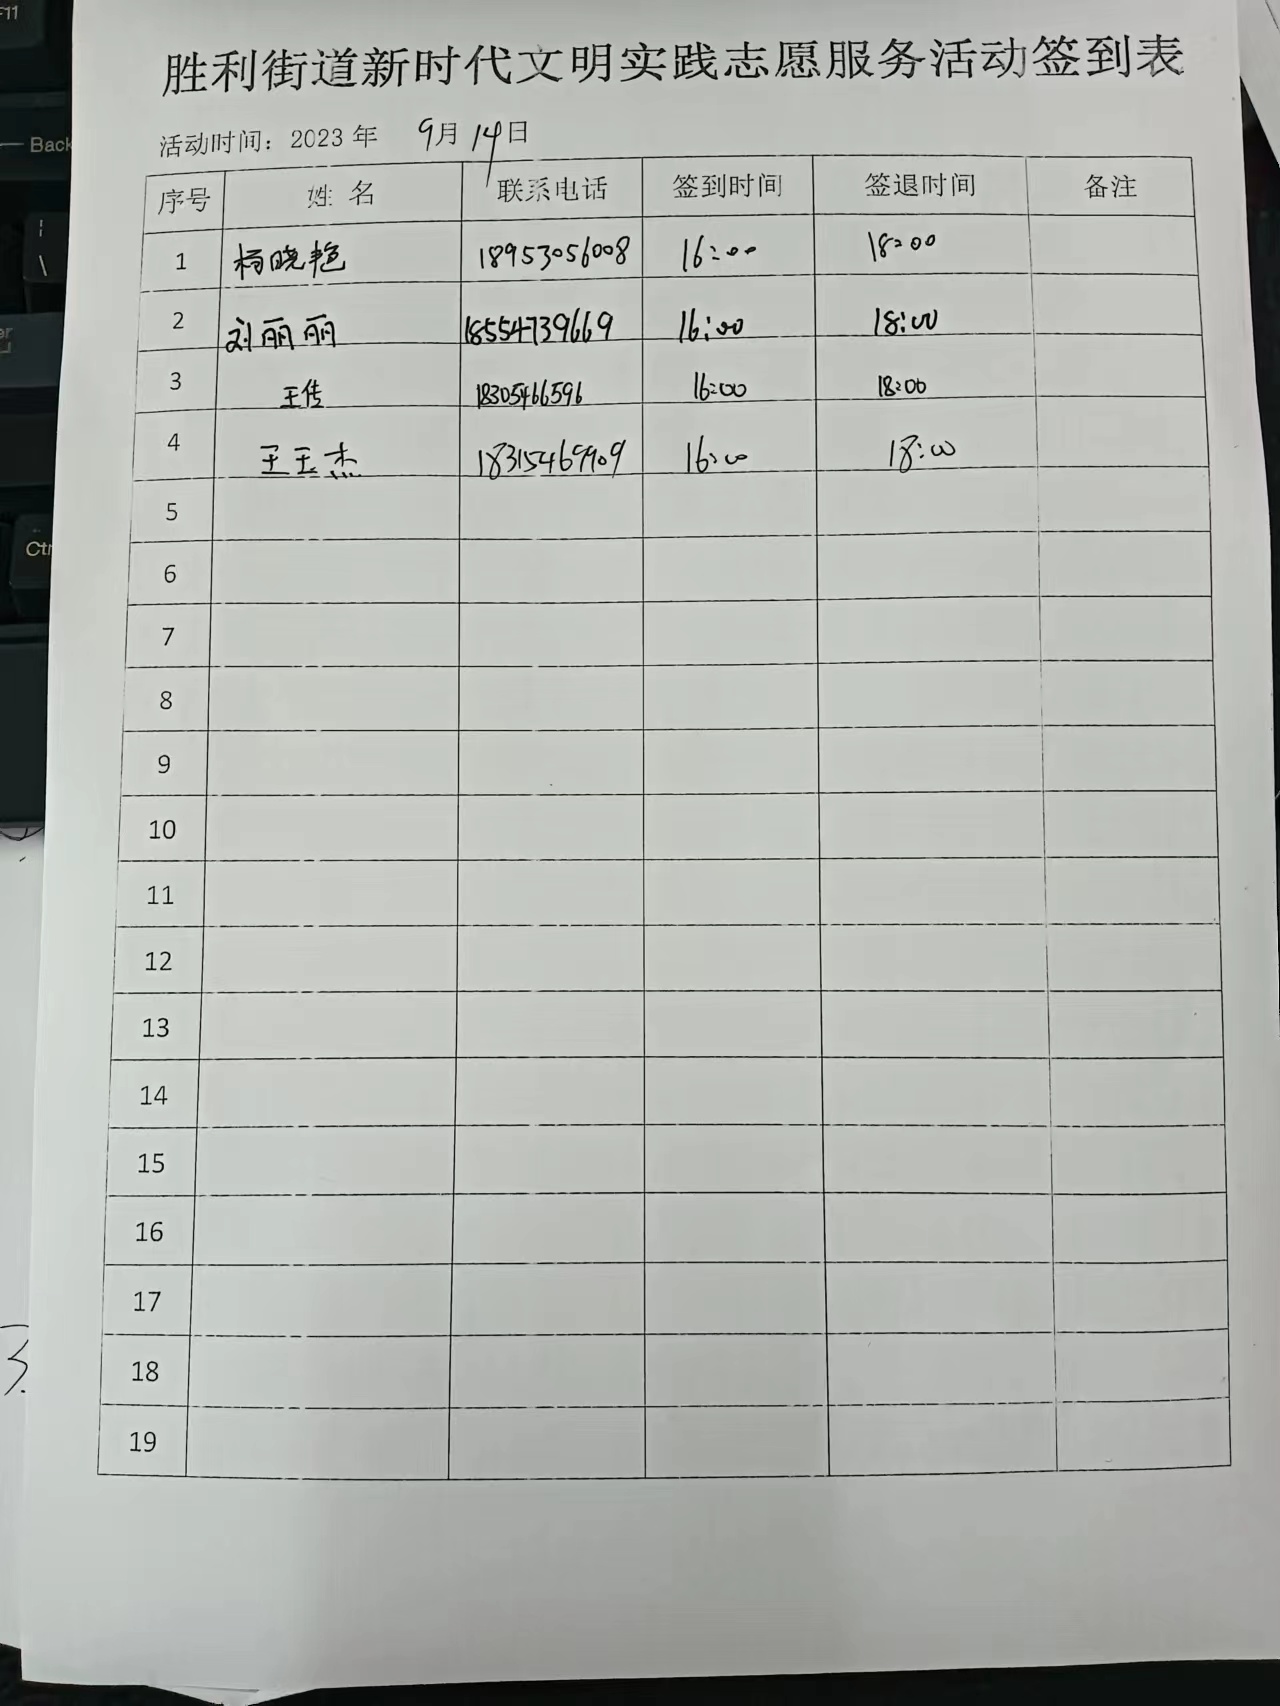 胜利街道新时代文明实践志愿服务活动签到表
活动时间：2023年 9月14日
序号 姓名 联系电话 签到时间 签退时间 备注
1 杨晓艳 18953056008 16:00 18:00
2 刘丽丽 18554739669 16:00 18:00
3 王传 18305466596 16:00 18:00
4 王玉杰 18315469909 16:00 18:00
5
6
7
8
9
10
11
12
13
14
15
16
17
18
19
F11
Back
\
Ctr